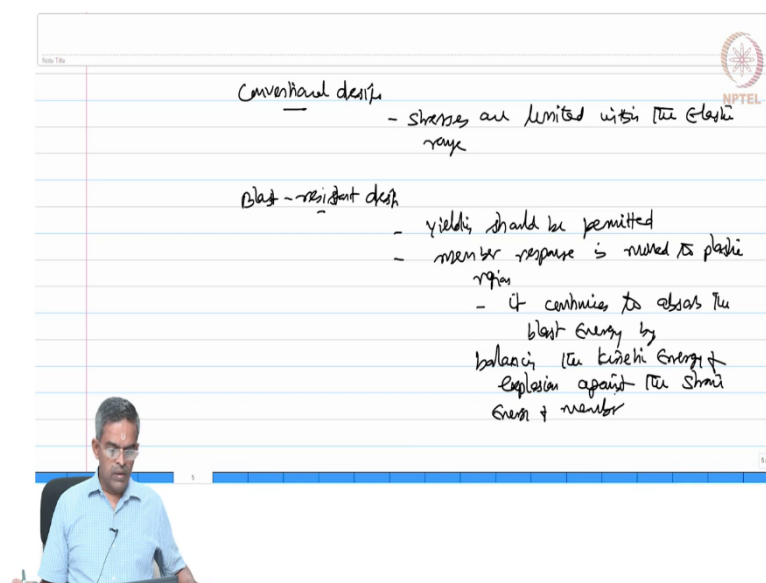 Note Title
NPTEL
Conventional design
- stresses are limited within the Elastic
range
Blast-resistant design
- yielding should be permitted
- member response is moved to plastic
region
- it continues to absorb the
blast Energy by
balancing the kinetic Energy of
explosion against the strain
Energy of member
5